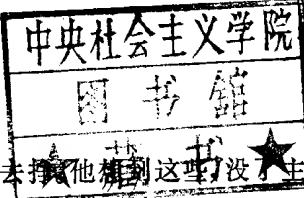 中央社会主义学院
图书馆
★藏书★
去 他想到这些 没了主